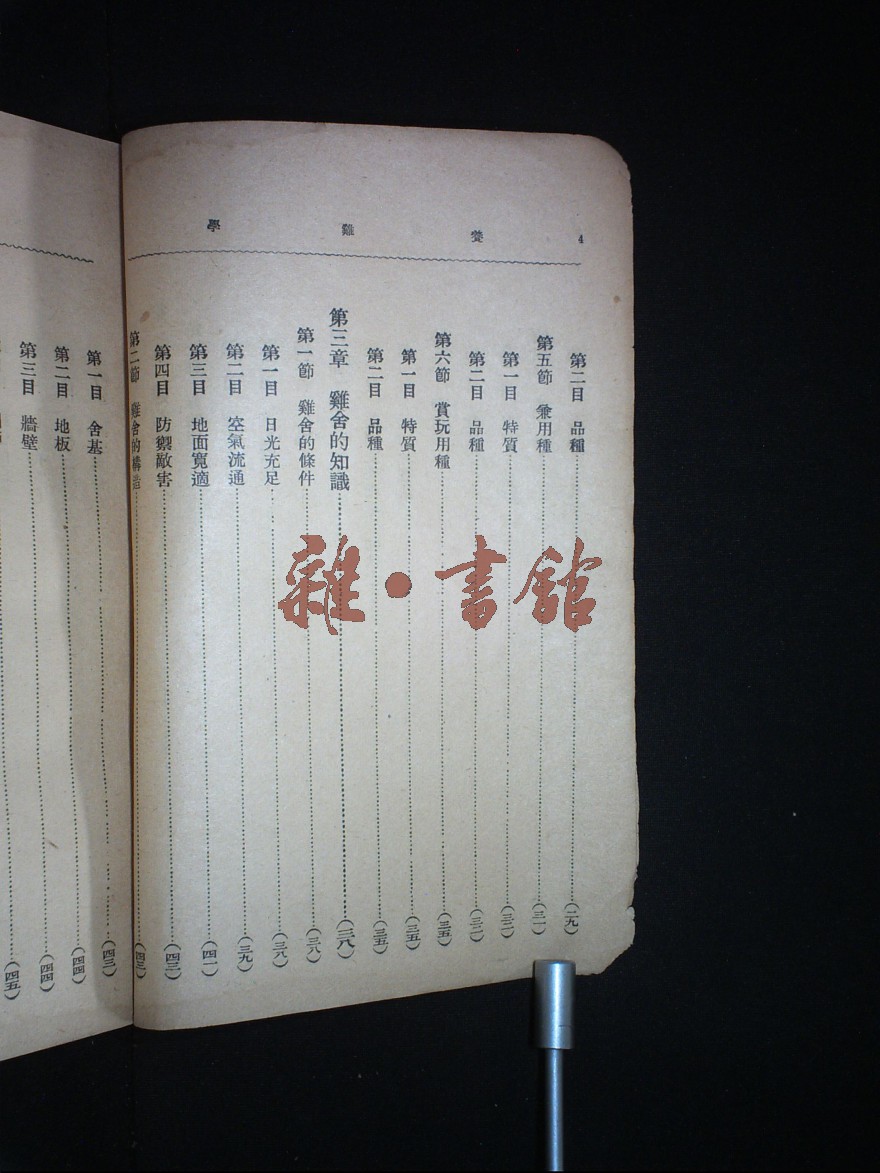 養雞學
4
第二目 品種……(二九)
第五節 兼用種……(三一)
第一目 特質……(三二)
第二目 品種……(三二)
第六節 賞玩用種……(三五)
第一目 特質……(三五)
第二目 品種……(三五)
第三章 雞舍的知識……(三八)
第一節 雞舍的條件……(三八)
第一目 日光充足……(三八)
第二目 空氣流通……(三九)
第三目 地面寬適……(四一)
第四目 防禦敵害……(四三)
第二節 雞舍的構造……(四三)
第一目 舍基……(四三)
第二目 地板……(四四)
第三目 牆壁……(四四)
(四五)
雜·書館